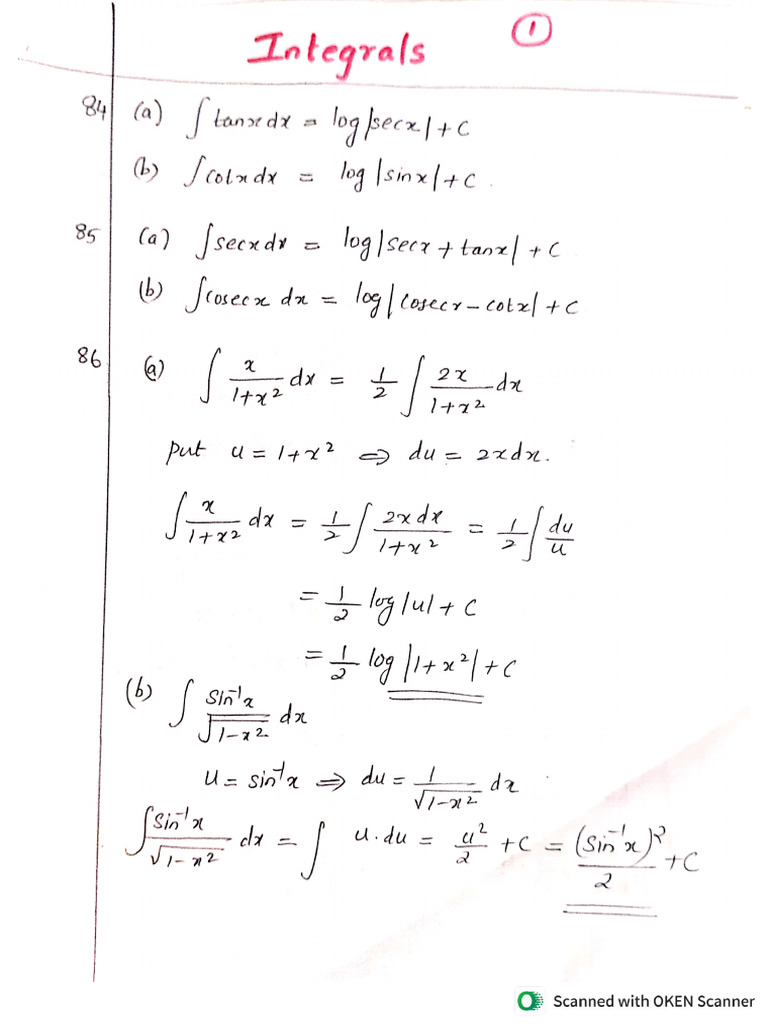 Integrals ①
84 (a) ∫ tanx dx = log|secx| + C
(b) ∫ cotx dx = log|sinx| + C.
85 (a) ∫ secx dx = log|secx + tanx| + C
(b) ∫ cosecx dx = log|cosecx − cotx| + C
86 (a) ∫ x/(1+x²) dx = 1/2 ∫ 2x/(1+x²) dx
put u = 1+x² ⇒ du = 2xdx.
∫ x/(1+x²) dx = 1/2 ∫ 2x dx/(1+x²) = 1/2 ∫ du/u
= 1/2 log|u| + C
= 1/2 log|1+x²| + C
(b) ∫ Sin⁻¹x/√(1−x²) dx
u = sin⁻¹x ⇒ du = 1/√(1−x²) dx
∫ Sin⁻¹x/√(1−x²) dx = ∫ u·du = u²/2 + C = (Sin⁻¹x)²/2 + C
Scanned with OKEN Scanner